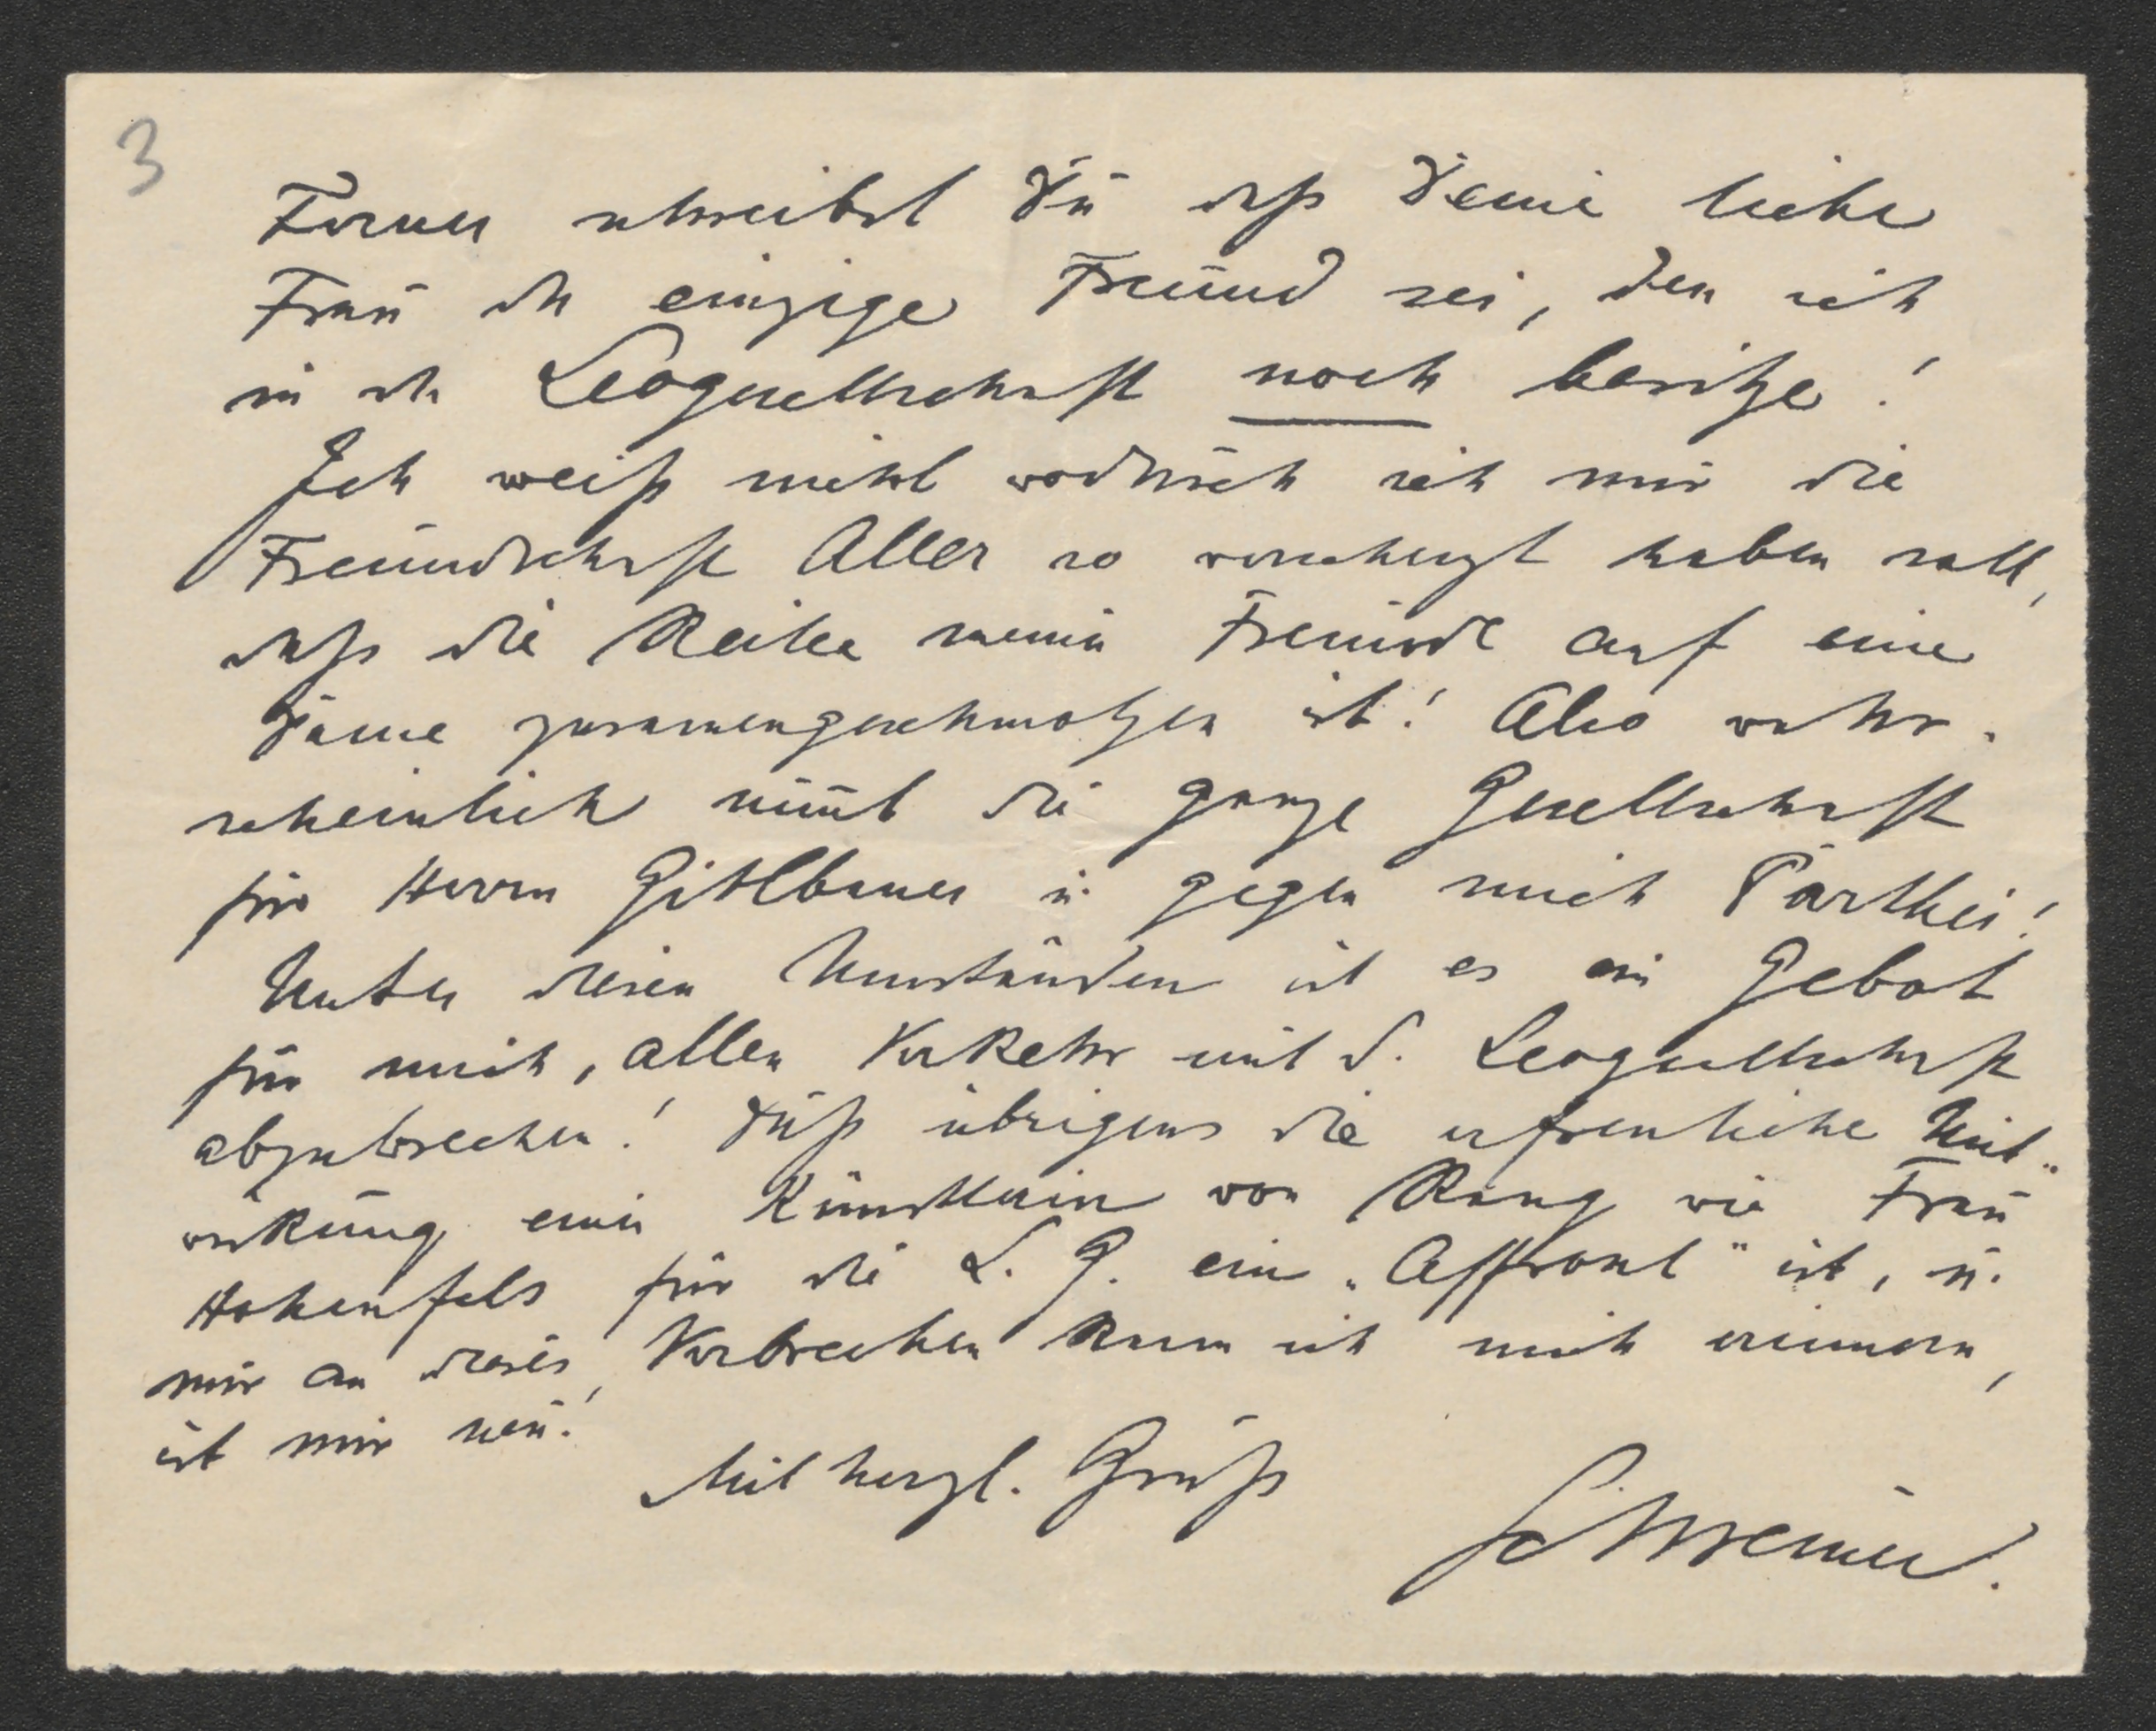 3
Ferner schreibst Du daß Deine liebe
Frau der einzige Freund sei, den ich
in der Leogesellschaft noch besitze!
Ich weiß nicht wodurch ich mir die
Freundschaft Aller so verscherzt haben soll,
daß die Reihe meiner Freunde auf eine
Dame zusammengeschmolzen ist! Also wahr-
scheinlich nim̄t die ganze Gesellschaft
für Herrn Gitlbauer u. gegen mich Parthei!
Unter diesen Umständen ist es ein Gebot
für mich, allen Verkehr mit d. Leogesellschaft
abzubrechen! Daß übrigens die erfreuliche Mit-
wirkung einer Künstlerin von Rang wie Frau
Hohenfels für die L. G. ein „Affront" ist, u.
nur an dieses Verbrechen kann ich mich erinnern,
ist mir neu!
Mit herzl. Gruß